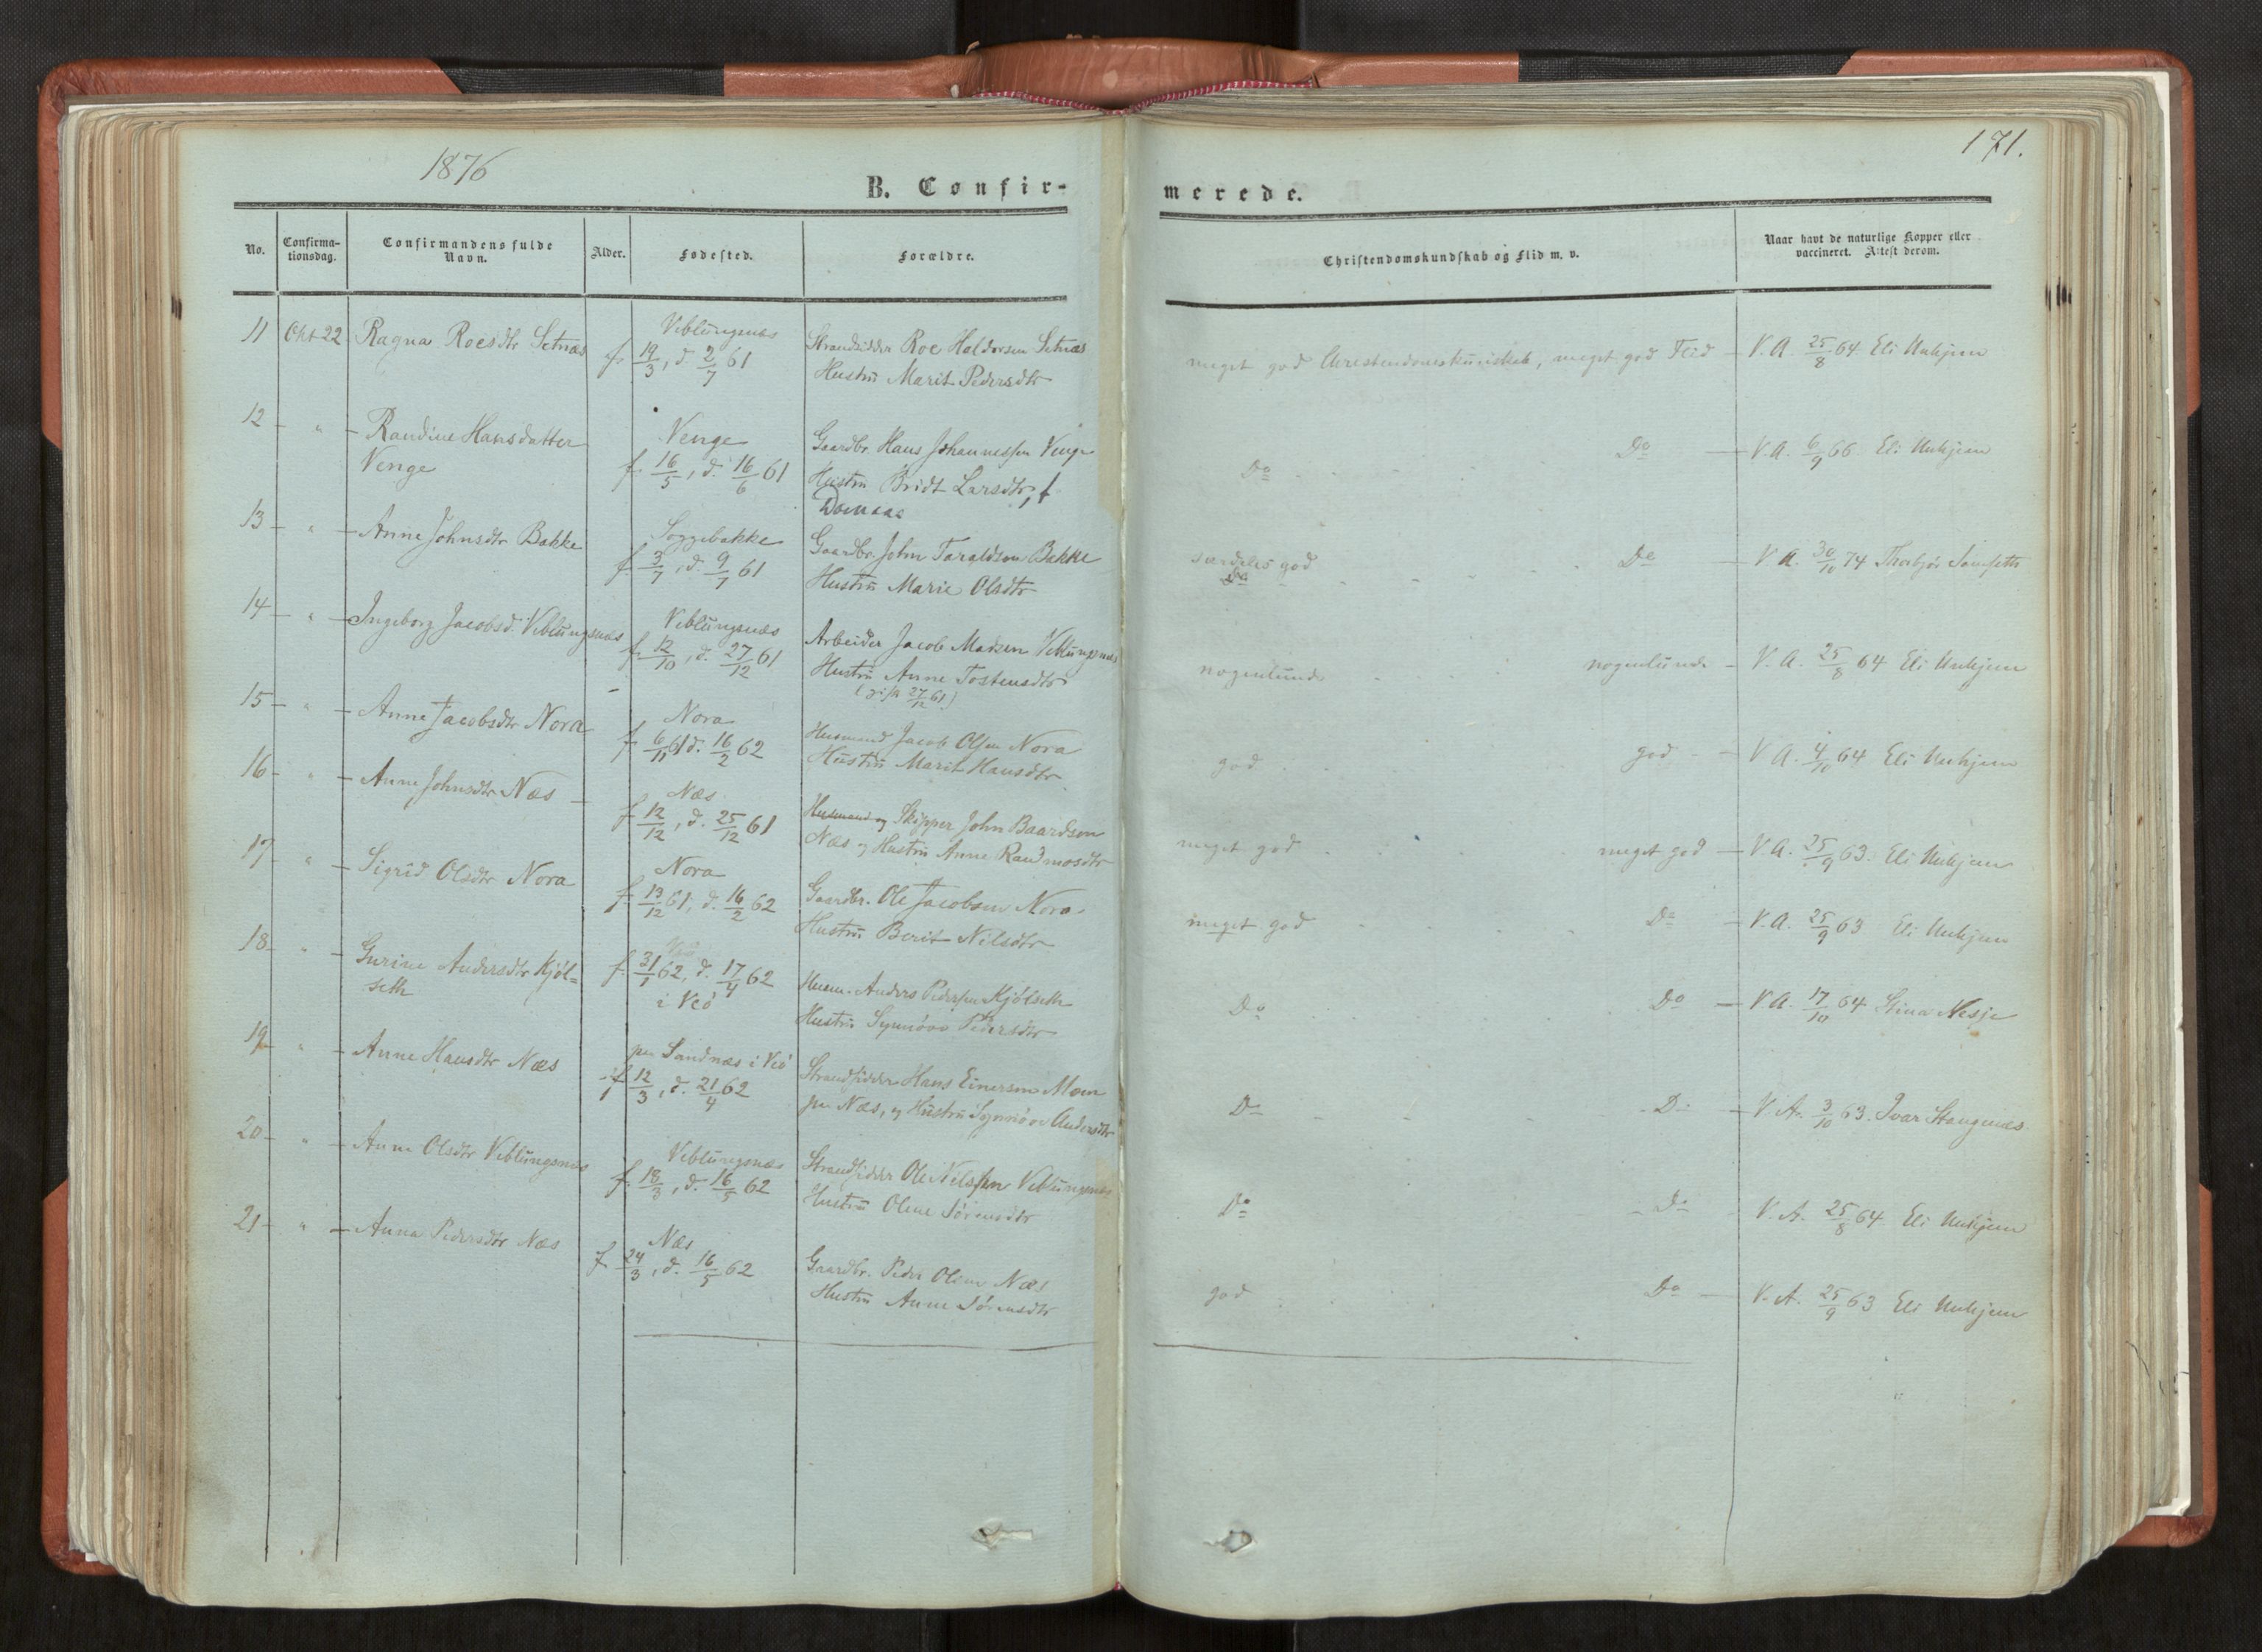 1876
B. Confir-
No.
Confirma-
tionsdag.
Confirmandens fulde
Navn.
Alder.
Fødested.
Forældre.
11 Okt 22 Ragna Roesdtr Setnæs
Veblungsnæs
f. 19/3, d. 2/7 61
Strandsidder Roe Haldorsen Setnæs
Hustru Marit Pedersdtr
12 - " - Randine Hansdatter
Venge
Venge
f. 16/5, d. 16/6 61
Gaardbr. Hans Johannessen Venge
Hustru Bridt Larsdtr, f.
13 - " - Anne Johnsdtr Bakke
Soggebakke
f. 3/7, d. 9/7 61
Gaardbr. John Taraldson Bakke
Hustru Marie Olsdtr
14 - " - Ingeborg Jacobsd. Veblungsnæs
Veblungsnæs
f. 12/10, d. 27/12 61
Arbeider Jacob Madsen Veblungsnæs
Hustru Anne Tostensdtr
27/12 61)
15 - " - Anne Jacobsdtr Nora
Nora
f. 6/11 61 d. 16/2 62
Husmand Jacob Olsen Nora
Hustru Marit Hansdtr
16 - " - Anne Johnsdtr Næs -
Næs
f. 12/12, d. 25/12 61
Husmand og Skipper John Baardson
Næs og Hustru Anne Randmosdtr
17 - " - Sigrid Olsdtr Nora
Nora
f. 13/12 61, d. 16/2 62
Gaardbr. Ole Jacobsen Nora
Hustru Berit Nilsdtr
18 - " - Gurine Andersdtr Kjøl=
seth
f. 31/1 62, d. 17/4 62
i Veø
Husm. Anders Pedersen Kjølseth
Hustru Synnøve Pedersdtr
19 - " - Anne Hansdtr Næs
paa Sandnæs i Veø
f. 12/3, d. 21/4 62
Strandsidder Hans Einersen Moen
paa Næs, og Hustru Synnøve Andersdtr
20 - " - Anne Olsdtr Veblungsnæs
Veblungsnæs
f. 18/3, d. 16/5 62
Strandsidder Ole Nilssen Veblungsnæs
Hustru Oline Sørensdtr
21 - " - Anna Pedersdtr Næs
Næs
f. 24/3, d. 16/5 62
Gaardbr. Peder Olsen Næs
Hustru Anne Sørensdtr
171.
merede.
Christendomskundskab og Flid m. v.
Naar havt de naturlige Kopper eller
vaccineret. Attest derom.
meget god Christendomskundskab, meget god Flid - V. A. 25/8 64 Eli Unhjem
Do Do - V. A. 6/9 66 Eli Unhjem
særdeles god Do - V. A. 30/10 74
Do
nogenlunde nogenlunde - V. A. 25/8 64 Eli Unhjem
god god - V. A. 4/10 64 Eli Unhjem
meget god meget god - V. A. 25/9 63. Eli Unhjem
meget god Do - V. A. 25/9 63 Eli Unhjem
Do Do - V. A. 17/10 64 Stina Nesje
Do Do - V. A. 3/10 63. Ivar Stangenæs
Do Do V. A. 25/8 64 Eli Unhjem
god Do - V. A. 25/9 63 Eli Unhjem